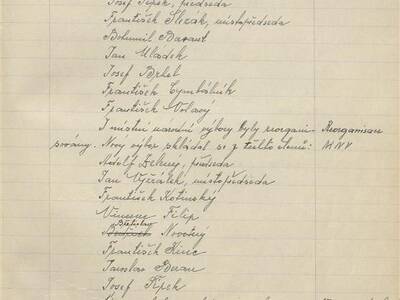 Josef Řípek, předseda
František Slezák, místopředseda
Bohumil Barant
Jan Mladek
Josef Brhel
František Cymbálník
František Volavý
I místní národní výbory byly reorgani-
sovány. Nový výbor skládal se z těchto členů:
Reorganisace
M N V
Adolf Zelený, předseda
Jan Vyčítálek, místopředseda
František Kotinský
Filip
Břetislav
Novotný
František
Jaroslav Beran
Josef Řípek